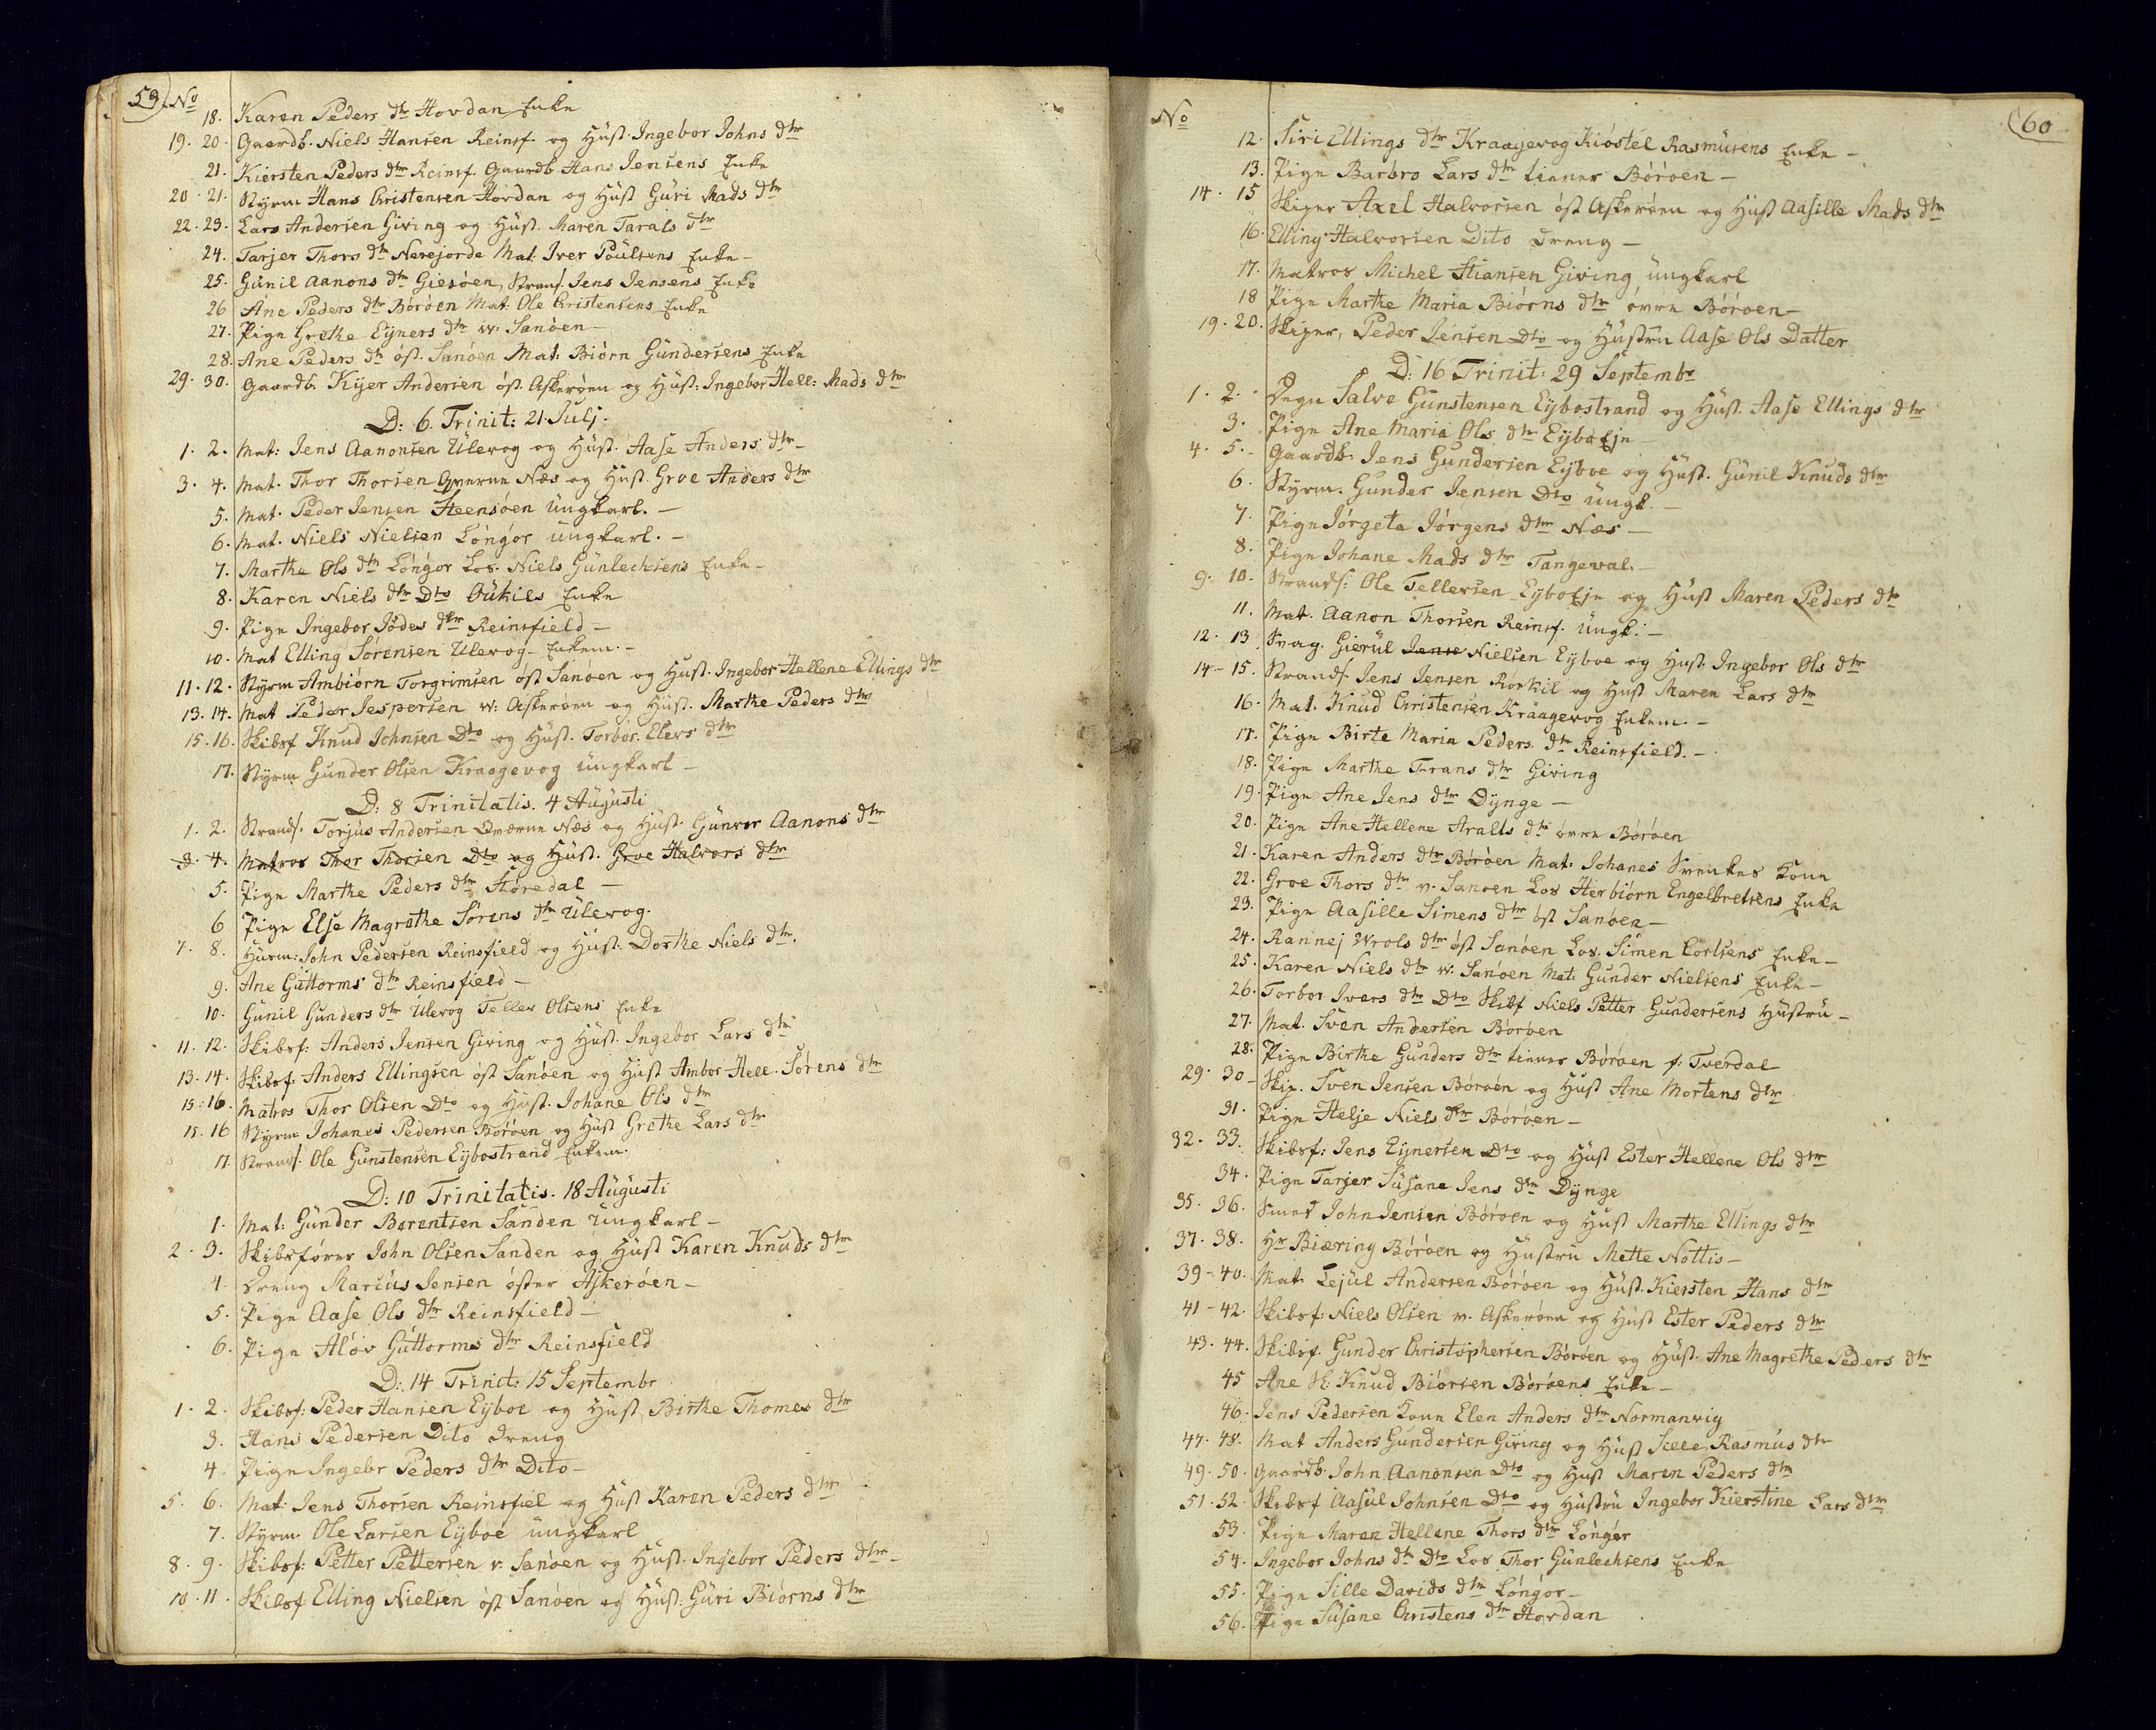 59 No
18. Karen Peders dtr Hovdan Enke
19. 20. Gaardb. Niels Hansen Reinsf. og Hust. Ingebor Johns dtr
21. Kiersten Peders dtr Reinsf. Gaardb Hans Jensens Enke
20. 21. Styrm Hans Christensen Hovdan og Hust Guri Mads dtr
22. 23. Lars Andersen Giving og Hust. Maren Tarals dtr
24. Tarjer Thors dtr Nerejorde Mat: Iver Poulsens Enke -
25. Gunil Aanons dtr Giesöen, Strans. Jens Jensens Enke
26 Ane Peders dtr Böröen Mat: Ole Christensens Enke
27. Pige Grethe Eyners dtr w: Sanöen -
28. Ane Peders dtr öst. Sanöen Mat: Biörn Gundersens Enke
29. 30. Gaardb. Kijer Andersen öst. Askeröen og Hust: Ingebor Hell: Mads dtr
D: 6. Trinit: 21. Julj.
1. 2. Mat: Jens Aanonsen Ulevog og Hust. Aase Anders dtr -
3. 4. Mat. Thor Thorsen Qverne Næs og Hust. Groe Anders dtr
5. Mat. Peder Jensen Steensöen ungkarl. -
6. Mat. Niels Nielsen Löngör ungkarl. -
7. Marthe Ols dtr Löngör Los. Niels Gunlechsens Enke -
8. Karen Niels dtr Dto Öukils Enke
9. Pige Ingebor Jödes dtr Reinsfield -
10. Mat Elling Sörensen Ulevog - Enkem. -
11. 12. Styrm Ambiörn Torgrimsen öst Sanöen og Hust. Ingebor Hellene Ellings dtr
13. 14. Mat Peder Jespersen w: Askeröen og Hust. Marthe Peders dtr
15. 16. Skibsf Knud Johnsen Dto og Hust. Torbor Elevs dtr
17. Styrm Gunder Olsen Kraagevog ungkarl -
D: 8 Trinitatis. 4 Augusti
1. 2. Strands. Torjus Andersen Qværne Næs og Hust. Gunvor Aanons dtr
3. 4. Matros Thor Thorsen Dto og Hust. Groe Halvors dtr
5. Pige Marthe Peders dtr Störedal -
6 Pige Else Magrethe Sörens dtr Ulevog.
7. 8. Huusm: John Pedersen Reinsfield og Hust. Dorthe Niels dtr.
9. Ane Guttorms dtr Reinsfield -
10. Gunil Gunders dtr Ulevog Tellev Olsens Enke
11. 12. Skibsf: Anders Jensen Giving og Hust. Ingebor Lars dtr
13. 14. Skibsf. Anders Ellingsen öst Sanöen og Hust Ambor Hell. Sörens dtr
15. 16. Matros Thor Olsen Dto og Hust. Johane Ols dtr
15. 16 Styrm Johanes Pedersen Böröen og Hust Grethe Lars dtr
17. Strands. Ole Gunstensen Eybostrand Enkem.
D: 10 Trinitatis. 18 Augusti
1. Mat: Gunder Berentsen Sanden Ungkarl -
2. 3. Skibsförer John Olsen Sanden og Hust Karen Knuds dtr
4. Dreng Marcus Jensen öster Askeröen -
5. Pige Aase Ols dtr Reinsfield -
6. Pige Alöv Guttorms dtr Reinsfield
D: 14 Trinit: 15 Septembr
1. 2. Skibsf: Peder Hansen Eyboe og Hust. Birthe Thomes dtr
3. Hans Pedersen Dito Dreng
4. Pige Ingebr Peders dtr Dito -
5. 6. Mat: Jens Thorsen Reinsfiel og Hust Karen Peders dtr
7. Styrm. Ole Larsen Eyboe ungkarl
8. 9. Skibsf: Petter Pettersen v. Sanöen og Hust. Ingebor Peders dtr -
10. 11. Skibsf Elling Nielsen öst Sanöen og Hust: Guri Biörns dtr
No 60
12. Siri Ellings dtr Kraagevog Kiöstel Rasmusens Enke -
13. Pige Barbro Lars dtr tiener Böröen -
14. 15 Skiper Axel Halvorsen öst Askeröen og Hust Aasille Mads dtr
16. Elling Halvorsen Dito Dreng -
17. Matros Michel Stiansen Giving ungkarl
18 Pige Marthe Maria Biörns dtr övre Böröen -
19. 20. Skiper, Peder Jensen Dto og Hustru Aase Ols Datter
D: 16 Trinit: 29 Septembr
1. 2. Degn Salve Gunstensen Eybostrand og Hust. Aase Ellings dtr
3. Pige Ane Maria Ols dtr Eyboeje
4. 5. Gaardb: Jens Gundersen Eyboe og Hust. Gunil Knuds dtr
6. Styrm. Gunder Jensen Dto ungk. -
7. Pige Jörgeta Jörgens dtr Næs -
8. Pige Johane Mads dtr Tangeval. -
9. 10. Strands: Ole Tellersen Eyboeje og Hust Maren Peders dtr
11. Mat. Aanon Thorsen Reinsf. ungk: -
12. 13 Svag. Gierul Jense Nielsen Eyboe og Hust. Ingebor Ols dtr
14 - 15. Strands. Jens Jensen Rörkil og Hust Maren Lars dtr
16. Mat. Knud Christensen Kraagevog Enkem. -
17. Pige Birte Maria Peders dtr Reinsfield. -
18. Pige Marthe Terans dtr Giving
19. Pige Ane Jens dtr Dynge -
20. Pige Ane Hellene Aralts dtr övre Böröen
21. Karen Anders dtr Böröen Mat: Johanes Svenkes Kone
22. Groe Thors dtr v. Sanöen Los Herbiörn Engelbretsens Enke
23. Pige Aasille Simens dtr öst Sanöen -
24. Rannej Wrols dtr öst Sanöen Los. Simen Cortsens Enke -
25. Karen Niels dtr w. Sanöen Mat: Gunder Nielsens Enke -
26. Torbor Ivers dtr Dto Skibsf Niels Petter Gundersens Hustru -
27. Mat. Sven Andersen Böröen
28. Pige Birthe Gunders dtr tiener Böröen f: Tverdal
29. 30 - Skip. Sven Jensen Böröen og Hust Ane Mortens dtr
31. Pige Helje Niels dtr Böröen -
32. 33. Skibsf: Jens Eynersen Dto og Hust Ester Hellene Ols dtr
34. Pige Tarjer Susane Jens dtr Dynge
35. 36. Smed John Jensen Böröen og Hust Marthe Ellings dtr
37. 38. Hr Biæring Böröen og Hustru Mette Nottis -
39 - 40. Mat. Lejul Andersen Böröen og Hust. Kiersten Hans dtr
41 - 42. Skibsf: Niels Olsen v. Askeröen og Hust Ester Peders dtr
43. 44. Skibsf. Gunder Christophersen Böröen og Hust. Ane Magrethe Peders dtr
45 Ane Sl. Knud Biörsen Böröens Enke -
46. Jens Pedersen Kone Elen Anders dtr Normanvig
47. 48. Mat Anders Gundersen Giving og Hust Scele Rasmus dtr
49. 50. Gaardb. John Aanonsen Dto og Hust Maren Peders dtr
51. 52. Skibsf Aasul Johnsen Dto og Hustru Ingebor Kierstine Lars dtr
53. Pige Maren Hellene Thors dtr Löngör
54. Ingebor Johns dtr Dto Los Thor Gunlechsens Enke
55. Pige Sille Davids dtr Löngör -
56. Pige Susane Christens dtr Hovdan